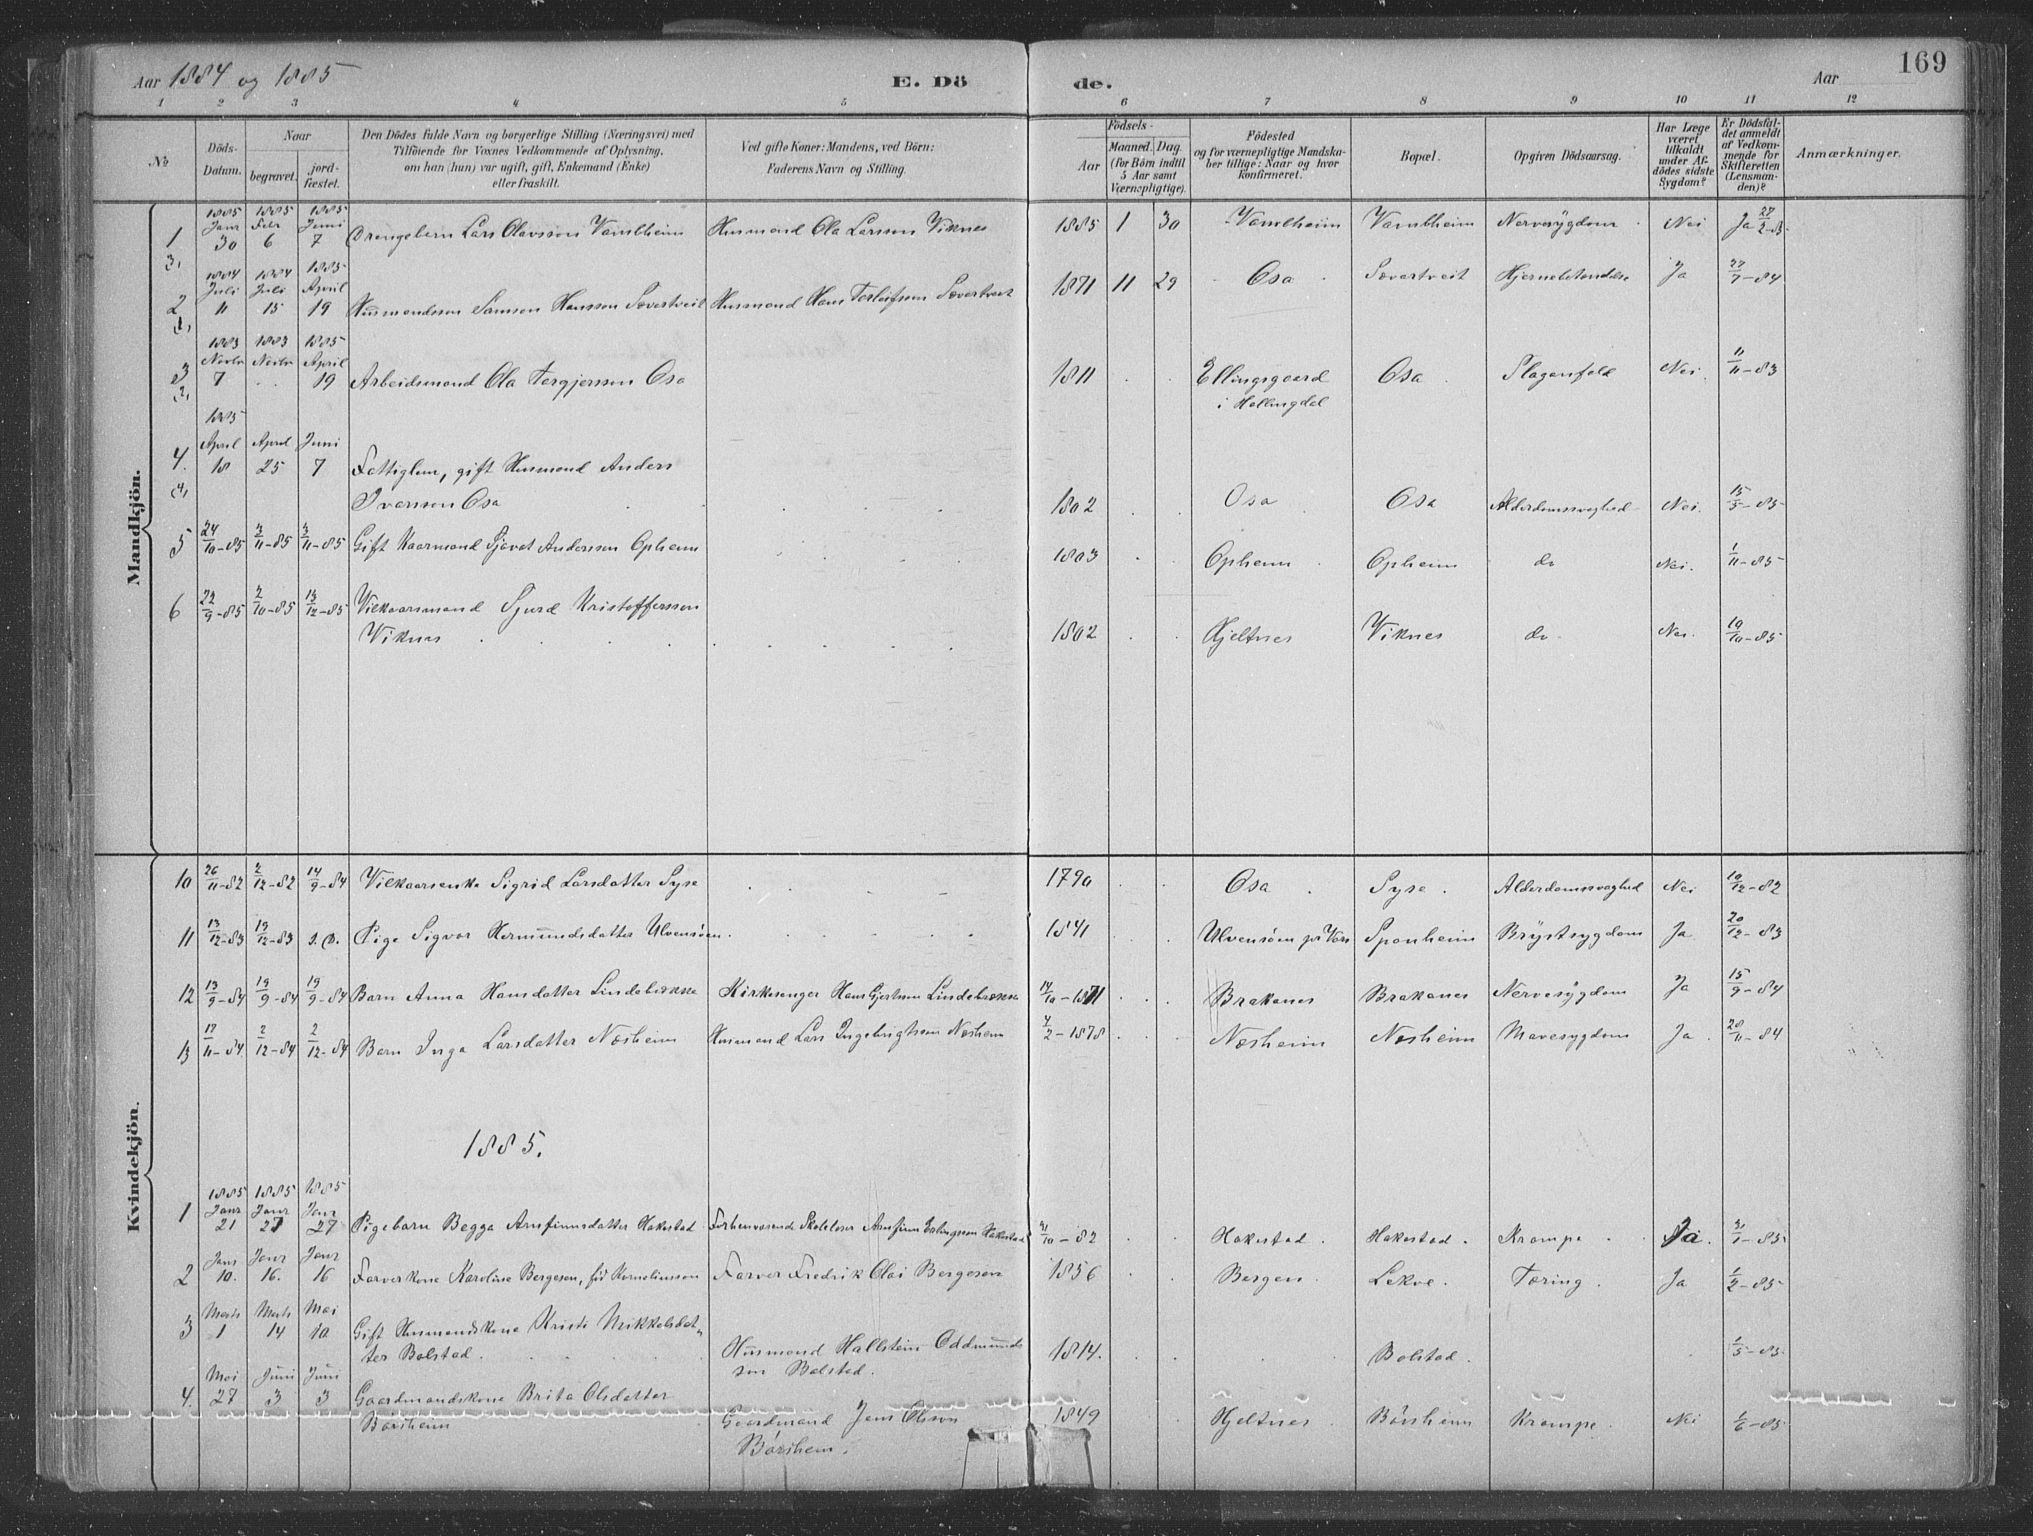 169
Aar 1884 og 1885 E. Dö de. Aar
1 2 3 4 5 6 7 8 9 10 11 12
No
Döds-Datum.
Naar
begravet.
jord-fæstet.
Den Dödes fulde Navn og borgerlige Stilling (Næringsvei) med
Tilföiende for Voxnes Vedkommende af Oplysning,
om han (hun) var ugift, gift, Enkemand (Enke)
eller fraskilt.
Ved gifte Koner: Mandens, ved Börn:
Faderens Navn og Stilling.
Födsels-
Aar
Maaned. Dag.
(for Börn indtil
5 Aar samt
Værnepligtige).
Födested
og for værnepligtige Mandska-
ber tillige: Naar og hvor
konfirmeret.
Bopæl.
Opgiven Dödsaarsag.
Har Læge
været
tilkaldt
under Af-
dödes sidste
Sygdom?
Er Dödsfal-
det anmeldt
af Vedkom-
mende for
Skifteretten
(Lensman-
den)?
Anmærkninger.
Mandkjön.
1 3, 1885 Janr 30 1885 Febr 6 1885 Juni 7 Drengebarn Lars Olavsson Vambheim Husmand Ola Larsson Viknes 1885 1 30 Vambheim Vambheim Nervesygdom Nei Ja 28/2-85
2 1, 1884 Juli 11 1884 Juli 15 1885 April 19 Husmandssøn Samson Hansson Sævertveit Husmand Hans Torleifson Sævertveit 1871 11 29 Osa Sævertveit Hjernebetændelse Ja 27/7-84
3 2, 1883 Novbr 7 1883 Novbr . . 1885 April 19 Arbeidsmand Ola Torgjersson Osa 1811 . . Ellingsgaard
i Hallingdal Osa Slaganfald Nei 11/11-83
4. 4, 1885 April 18 April 25 Juni 7 Fattiglem, gift Husmand Anders
Iversson Osa 1802 . . Osa Osa Alderdomssvaghed Nei 15/5-85
5 24/10-85 3/11-85 3/11-85 Gift Kaarmand Sjovat Anderssen Opheim 1803 . . Opheim Opheim do Nei. 1/11-85
6 22/9-85 2/10-85 13/12-85 Vilkaarsmand Sjurd Kristoffersson
Viknes 1802 . . Hjeltnes Viknes do Nei. 10/10-85
Kvindekjön.
10 26/11-82 2/12-82 14/9-84 Vilkaarsenke Sigrid Larsdatter Syse 1790 . . Osa Syse. Alderdomssvaghed Nei 10/12-82
11 13/12-83 19/12-83 s. D. Pige Sigvor Hermundsdatter Ulvensøen 1841 . . Ulvensøen på Vors Sponheim Brystsygdom Ja 20/12-83
12 13/9-84 19/9-84 19/9-84 Barn Anna Hansdatter Lindebrække Kirkesanger Hans Gjertsen Lindebrække 14/10-1871 . . Brakanes Brakanes Nervesygdom Ja 15/9-84
13 17/11-84 2/12-84 2/12-84 Barn Inga Larsdatter Næsheim Husmand Lars Ingebrigtsen Næsheim 4/2-1878 . . Næsheim Næsheim Mavesygdom Ja. 28/11-84
1885.
1 1885 Janr 21 1885 Janr 27 1885 Janr 27 Pigebarn Begga Arnfinnsdatter Hakestad Forhenværende Skolelærer Arnfinn Erlingsson Hakestad 21/10-82 . . Hakestad. Hakestad. Krampe. Ja. 31/1-85
2 Janr 10. Janr 16. Janr 16 Farverkone Karoline Bergesen, fød Korneliussen Farver Fredrik Olai Bergesen 1856 . . Bergen. Lekve. Tæring. Ja 1/2-85
3 Marts 1 Marts 14 Mai 10 Gift Husmandskone Kristi Mikkelsdat-
ter Bolstad. Husmand Hallstein Oddmunds
søn Bolstad. 1814. . . Bolstad. 1/5-85
4. Mai 27 Juni 3 Juni 3 Gaardmandskone Brita Olsdatter
Børsheim Gaardmand Jens Olsson
Børsheim. 1849 . . Hjeltnes Børsheim Krampe. Nei 1/6-85